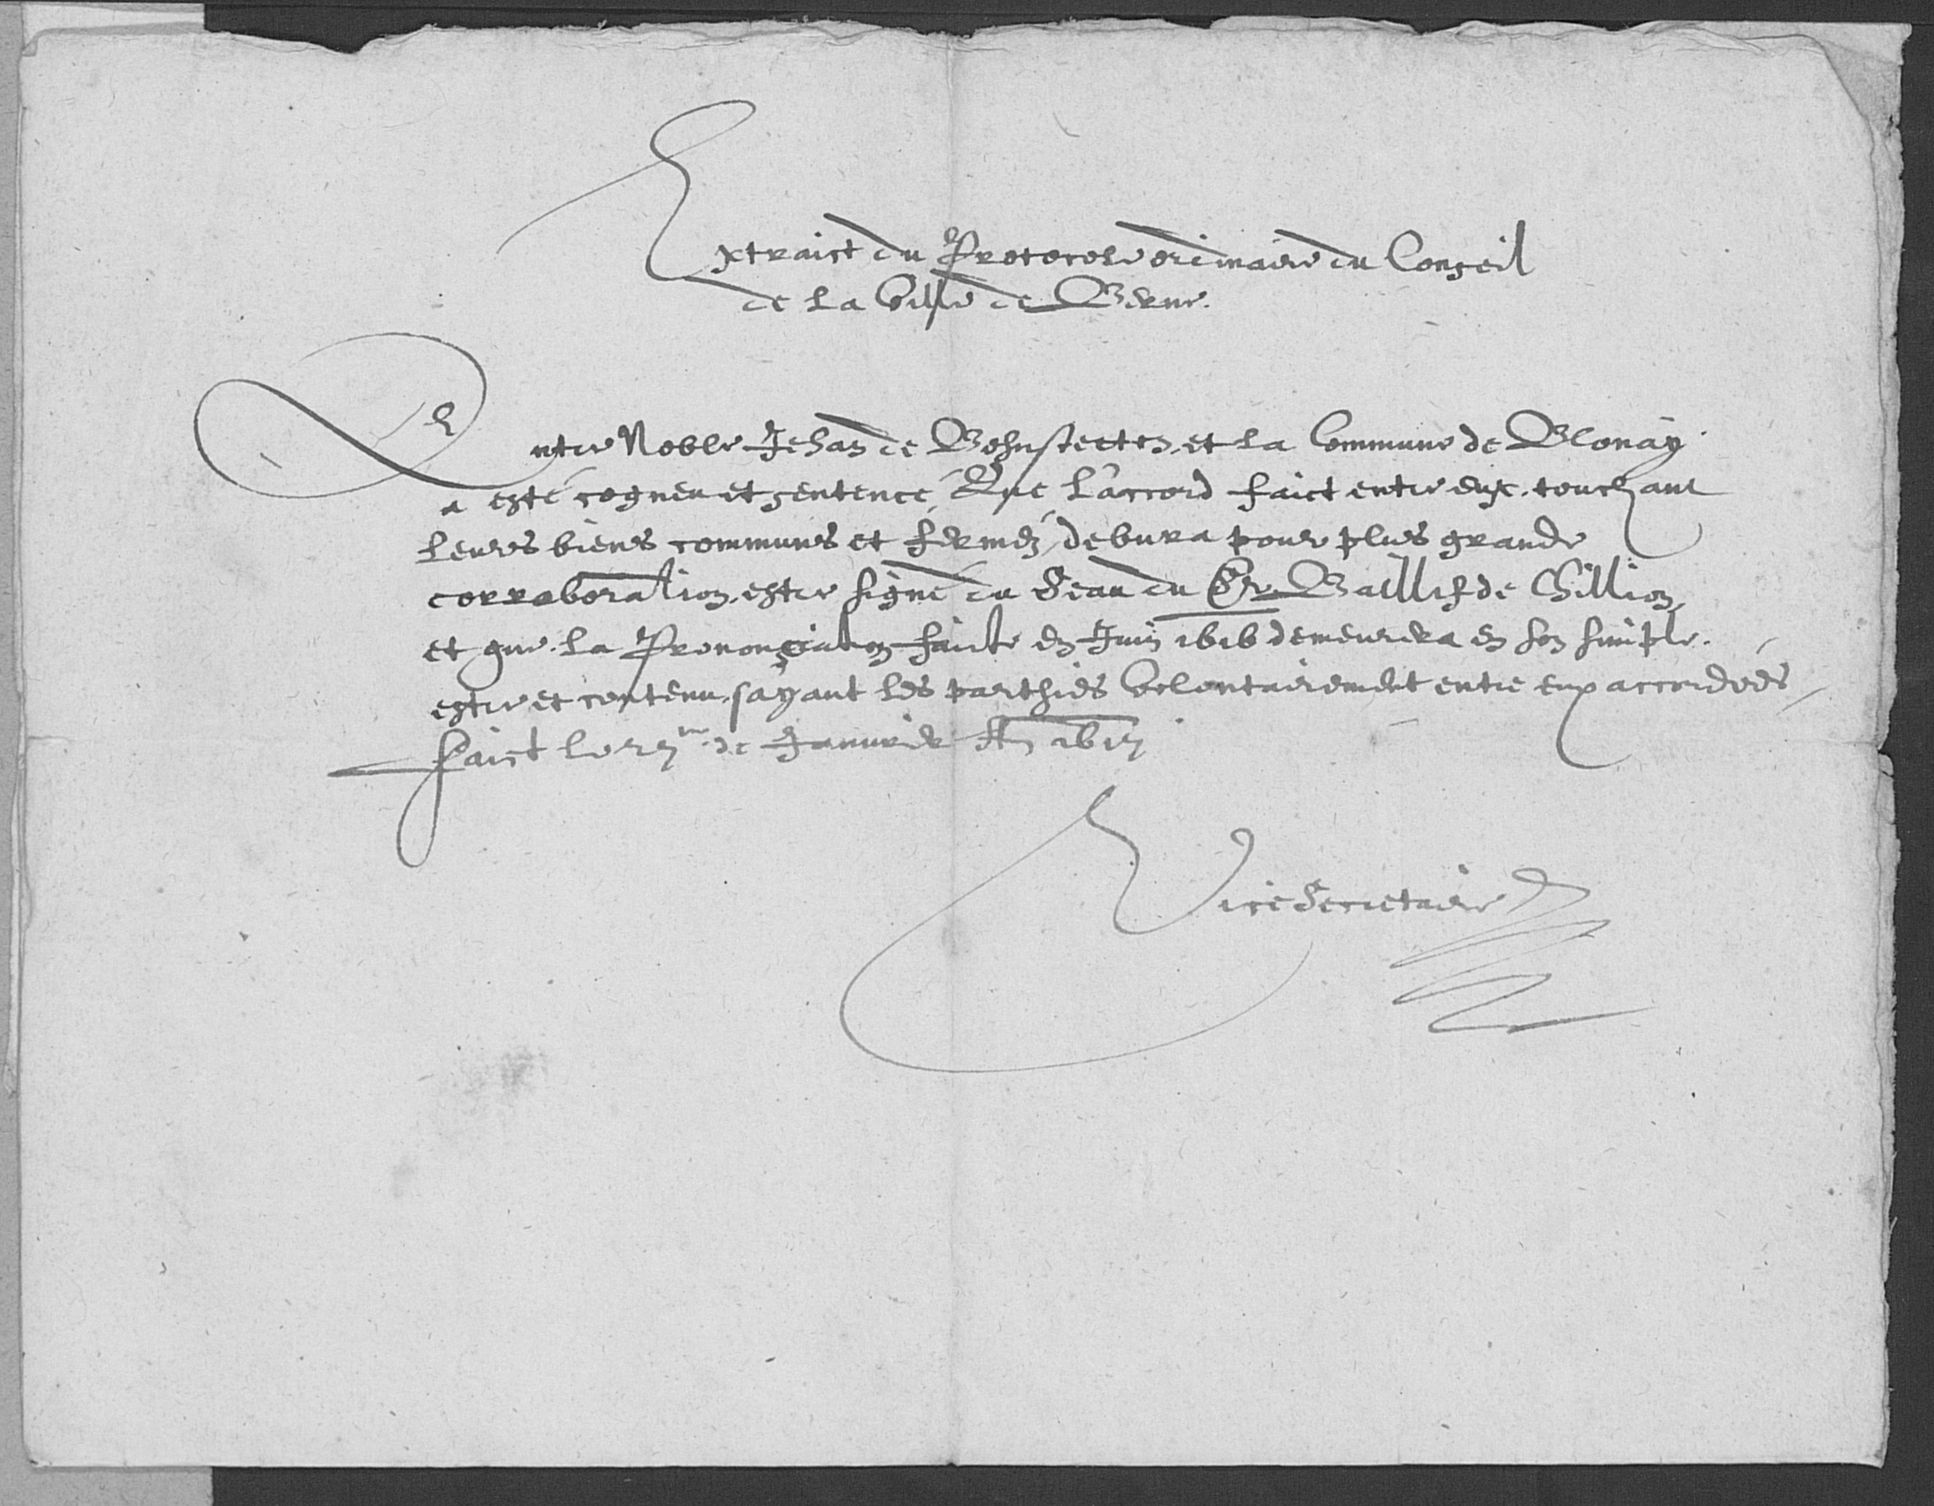 Extraict du Protocole ordinaire du Conseil
de la Ville de Berne.
Entre Noble Jehan de Bohnstetten et la Commune de Blonay
a esté cogneu et sentencé, Que l'accord faict entre eux touchant
leurs biens communs et fermez, debvra pour plus grande
corroboration estre signé du Seau du Sr. Baillif de Chillion,
et que la Prononçiation faicte en Juin 1616 demeurera en son simple
estre et contenu, s'ayant les parthies volontairement entre eux accordées
Faict le de Janvier An
ViceSecretaire